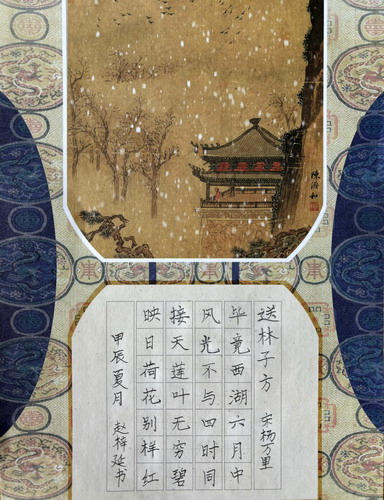 陈浩和
送林子方 宋杨万里
毕竟西湖六月中
风光不与四时同
接天莲叶无穷碧
映日荷花别样红
甲辰夏月 赵梓延书